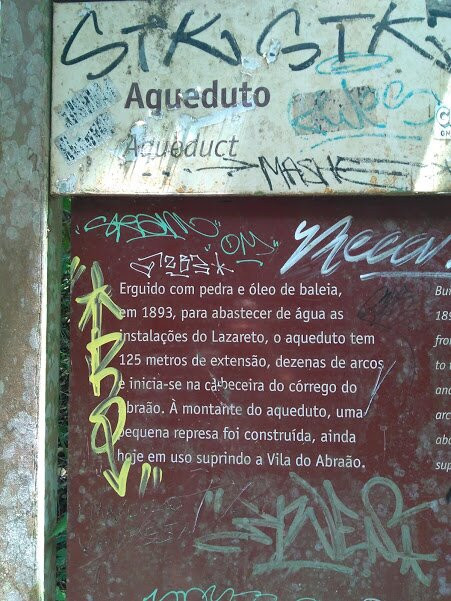 STK STK
Aqueduto
Aqueduct
MASHE
Erguido com pedra e óleo de baleia,
em 1893, para abastecer de água as
instalações do Lazareto, o aqueduto tem
125 metros de extensão, dezenas de arcos
e inicia-se na cabeceira do córrego do
Abraão. À montante do aqueduto, uma
pequena represa foi construída, ainda
hoje em uso suprindo a Vila do Abraão.
189
from
to
and
arc
abo
sup